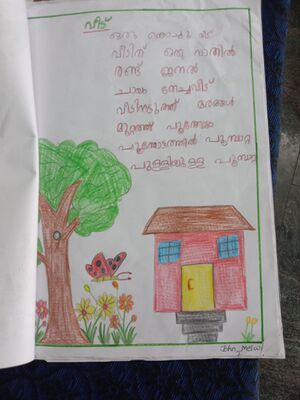 വീട്
ഒരു കൊച്ചു വീട്
വീടിന് ഒരു വാതിൽ
രണ്ട് ജനൽ
ചായം തേച്ചവീട്
വീടിനടുത്ത് മരങ്ങൾ
മുറ്റത്ത് പൂന്തോട്ടം
പൂന്തോട്ടത്തിൽ പൂമ്പാറ്റ
പുള്ളിയുള്ള പൂമ്പാറ്റ
C